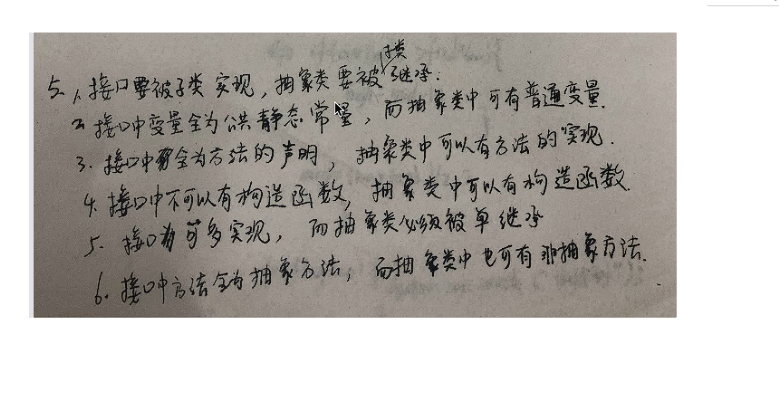 5. 1. 接口要被子类实现，抽象类要被子类继承.
2. 接口中变量全为公共静态常量，而抽象类中可有普通变量.
3. 接口中全为方法的声明，抽象类中可以有方法的实现.
4. 接口中不可以有构造函数，抽象类中可以有构造函数.
5. 接口可多实现，而抽象类必须被单继承
6. 接口中方法全为抽象方法，而抽象类中也可有非抽象方法.